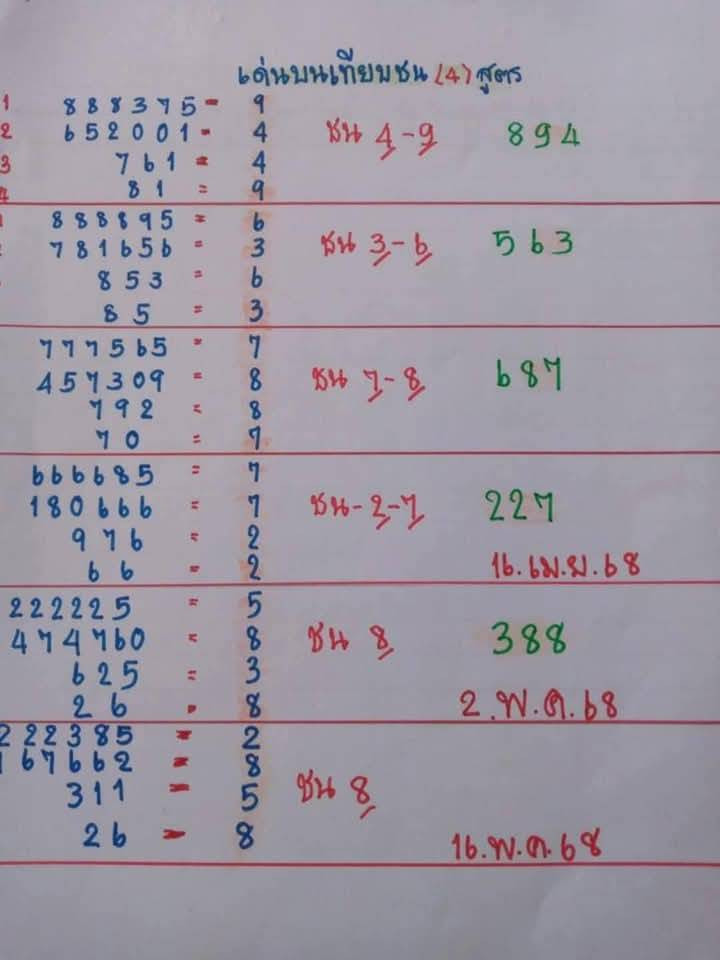 เด่นบนเทียบชน (4) สูตร
1 888375 = 9
2 652001 = 4 ชน 4-9 894
3 761 = 4
4 81 = 9
888895 = 6
781656 = 3 ชน 3-6 563
853 = 6
85 = 3
777565 = 7
457309 = 8 ชน 7-8 687
792 = 8
70 = 7
666685 = 7
180666 = 7 ชน-2-7 227
976 = 2
66 = 2 16.เม.ย.68
222225 = 5
474760 = 8 ชน 8 388
625 = 3
26 = 8 2.พ.ค.68
222385 = 2
167662 = 8
311 = 5 ชน 8
26 = 8 16.พ.ค.68